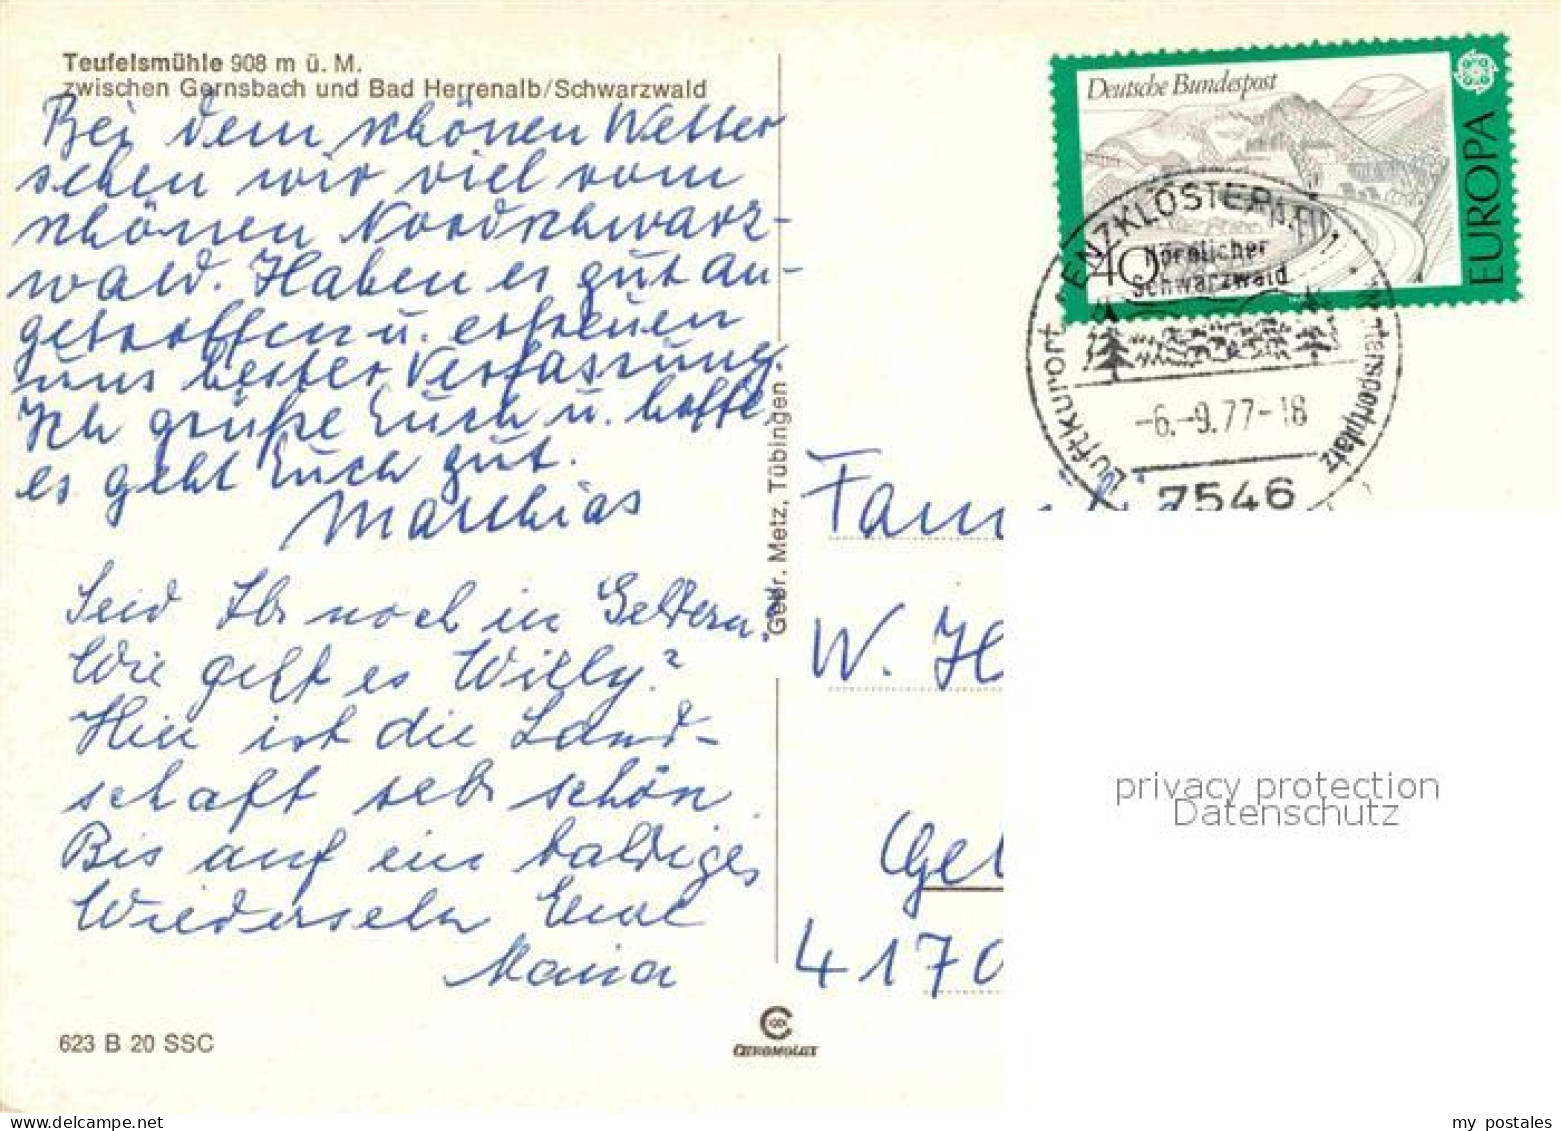 Teufelsmühle 908 m ü. M.
zwischen Gernsbach und Bad Herrenalb/Schwarzwald
Bei dem schönen Wetter
sehen wir viel vom
schönen Nordschwarz-
wald. Haben es gut an-
getroffen u. erfreuen
uns bester Verfassung.
Ich grüße Euch u. hoffe,
es geht Euch gut.
Matthias
Seid Ihr noch in Geldern?
Wie geht es Willy?
Hier ist die Land-
schaft sehr schön
Bis auf ein baldiges
Wiedersehn Eure
Maria
623 B 20 SSC
Gebr. Metz, Tübingen
CHROMOLUX
Deutsche Bundespost
EUROPA
40
ENZKLÖSTERLE
Nördlicher
Schwarzwald
Luftkurort
Wintersportplatz
-6.-9.77-18
7546
Fam
W. H
Gel
4170
privacy protection
Datenschutz
my postales